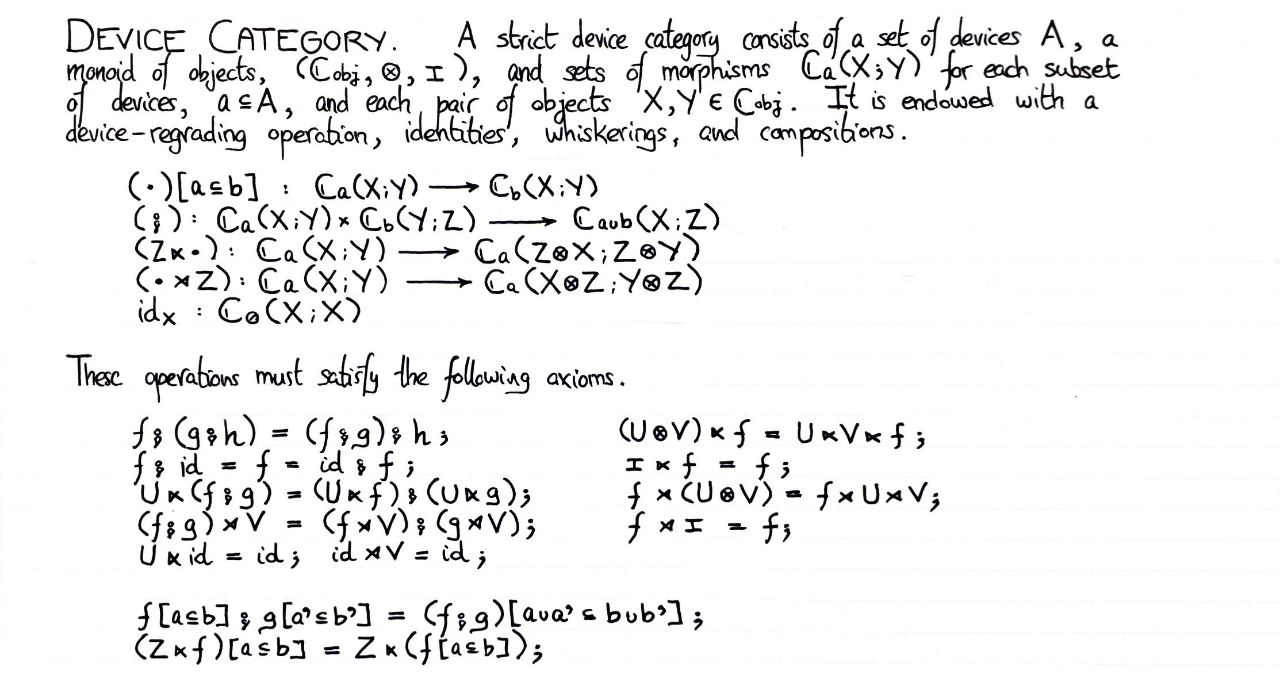 DEVICE CATEGORY. A strict device category consists of a set of devices A, a
monoid of objects, (ℂobj, ⊗, I), and sets of morphisms ℂa(X;Y) for each subset
of devices, a⊆A, and each pair of objects X,Y ∈ ℂobj. It is endowed with a
device-regrading operation, identities, whiskerings, and compositions.
(·)[a⊆b] : ℂa(X;Y) ⟶ ℂb(X;Y)
(⨾) : ℂa(X;Y) × ℂb(Y;Z) ⟶ ℂa∪b(X;Z)
(Z⋉·) : ℂa(X;Y) ⟶ ℂa(Z⊗X;Z⊗Y)
(·⋊Z) : ℂa(X;Y) ⟶ ℂa(X⊗Z;Y⊗Z)
idx : ℂ∅(X;X)
These operations must satisfy the following axioms.
f⨾(g⨾h) = (f⨾g)⨾h; (U⊗V)⋉f = U⋉V⋉f;
f⨾id = f = id⨾f; I⋉f = f;
U⋉(f⨾g) = (U⋉f)⨾(U⋉g); f⋊(U⊗V) = f⋊U⋊V;
(f⨾g)⋊V = (f⋊V)⨾(g⋊V); f⋊I = f;
U⋉id = id; id⋊V = id;
f[a⊆b]⨾g[a'⊆b'] = (f⨾g)[a∪a'⊆b∪b'];
(Z⋉f)[a⊆b] = Z⋉(f[a⊆b]);